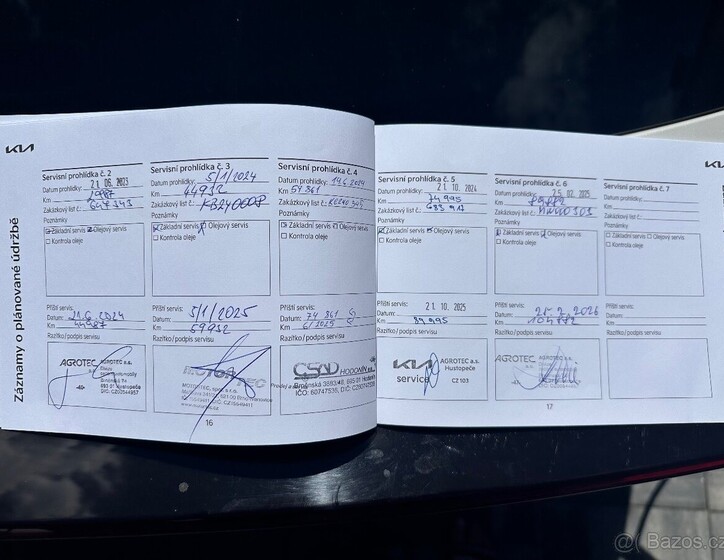 KIA
Záznamy o plánované údržbě
Servisní prohlídka č. 2
Datum prohlídky: 21. 06. 2023
Km 19987
Zakázkový list č.:
Poznámky
Základní servis Olejový servis
Kontrola oleje
Příští servis:
Datum: 21.6 2024
Km 44987
Razítko/podpis servisu
AGROTEC a.s.
693 01 Hustopeče
Servisní prohlídka č. 3
Datum prohlídky: 5/1/2024
Km 44932
Zakázkový list č.:
Poznámky
Základní servis Olejový servis
Kontrola oleje
Příští servis:
Datum: 5/1/2025
Km 59932
Razítko/podpis servisu
Servisní prohlídka č. 4
Datum prohlídky: 19.6 2024
Km 54 861
Zakázkový list č.:
Poznámky
Základní servis Olejový servis
Kontrola oleje
Příští servis:
Datum: 74 861
Km 6/2025
Razítko/podpis servisu
ČSAD HODONÍN a.s.
Brněnská 3883/48, 695 01 Hodonín
IČO: 60747536, DIČ: CZ60747536
16
Servisní prohlídka č. 5
Datum prohlídky: 21. 10. 2024
Km 74995
Zakázkový list č.:
Poznámky
Základní servis Olejový servis
Kontrola oleje
Příští servis: 21. 10. 2025
Datum:
Km 89995
Razítko/podpis servisu
KIA AGROTEC a.s.
Hustopeče
service CZ 103
Servisní prohlídka č. 6
Datum prohlídky: 25. 02. 2025
Km
Zakázkový list č.:
Poznámky
Základní servis Olejový servis
Kontrola oleje
Příští servis:
Datum: 25. 2. 2026
Km
Razítko/podpis servisu
AGROTEC
Servisní prohlídka č. 7
Datum prohlídky:
Km
Zakázkový list č.:
Poznámky
Základní servis Olejový servis
Kontrola oleje
Příští servis:
Datum:
Km
Razítko/podpis servisu
17
@ Bazos.cz